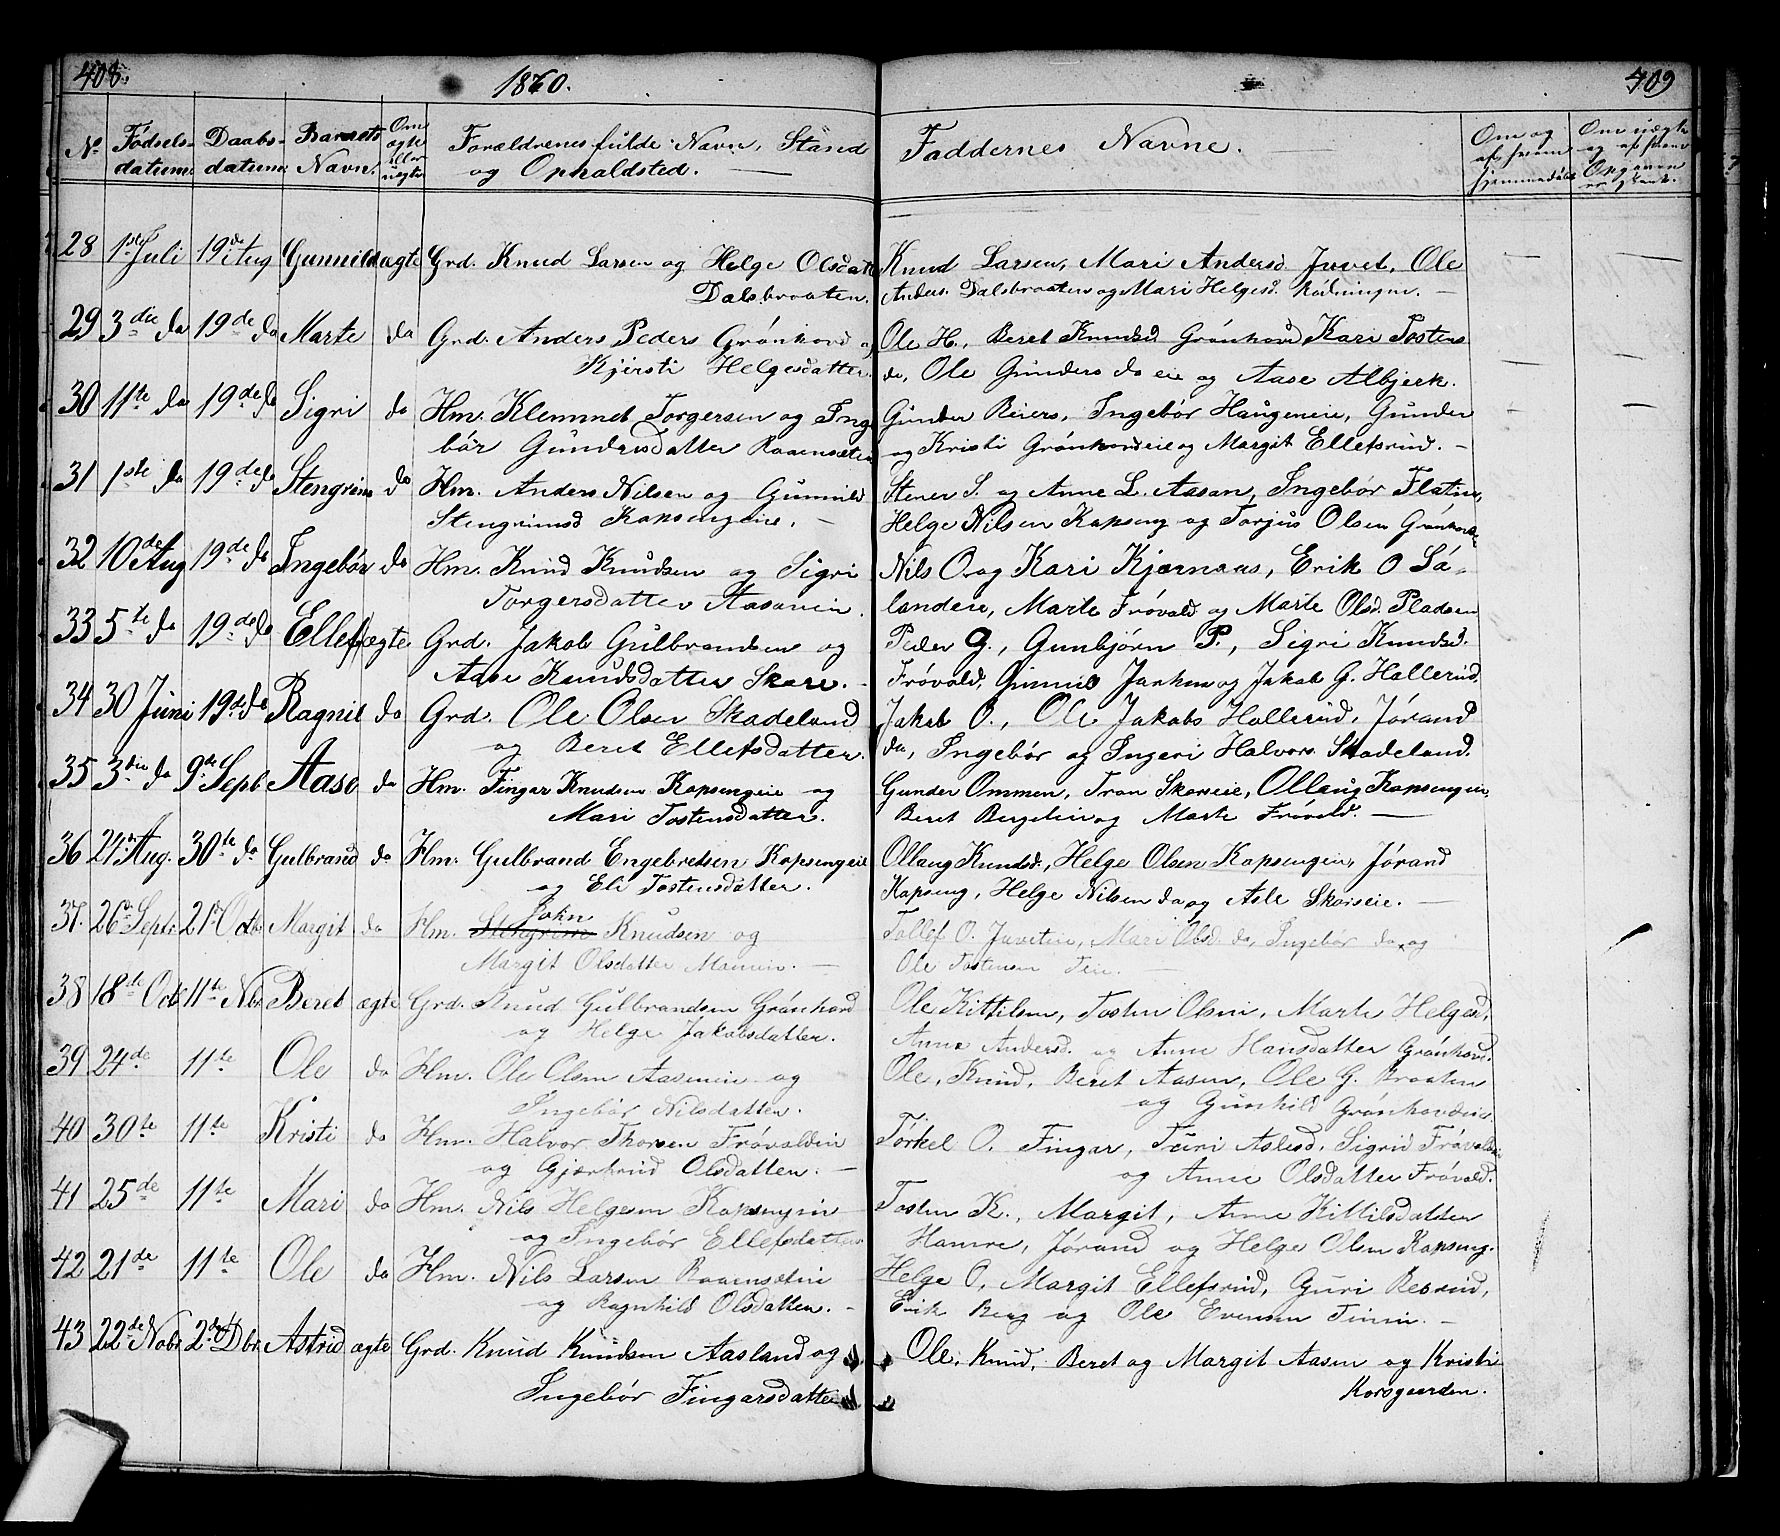 408.
1860.
409
No Fødselsdatum. Daabsdatum Barnets Navn. Om ægte eller uægte Forældrenes fulde Navn, Stand og Opholdsted. Faddernes Navne.
28 1ste Juli 19de i Aug Gunnild ægte Grd. Knud Larsen og Helge Olsdatt Knud Larsen, Mari Andersd. Juvet, Ole
Dalsbraaten. Anders. Dalsbraaten og Mari Helgesd. Rødningen.
29 3die do 19de do Marte do Grd. Anders Peders Grønhovd og Ole H., Beret Knudsd Grønhovd Kari Tostens
Kjersti Helgesdatter. do, Ole Gunders do eie og Aase Albjerk.
30 11te do 19de do Sigri do Hm. Klemmet Torgersen og Inge Gunder Reiers, Ingebør Haugeneie, Gunder
bør Gundersdatter Raaensæter og Kristi Grønhovdeie og Margit Ellefsrud.
31 1ste do 19de do Stengrim do Hm. Anders Nilsen og Gunnild Stener S. og Anne L. Aasan, Ingebør Flatin,
Stengrimsd Kapsengeie. Helge Nilsen Kapseng og Torjus Olsen Grønhovd
32 10de Aug 19de do Ingebør do Hm. Knud Knudsen og Sigri Nils O. og Kari Kjærnaas, Erik O Lø-
Torgersdatter Aasanein. landeie, Marte Frøvold og Marte Olsd. Pladsen
33 5te do 19de do Ellef ægte Grd. Jakob Gulbrandsen og Peder G., Gunbjørn P., Sigri Knudsd.
Aase Knudsdatter Skare. Frøvold, Gunnild og Jakob G. Hallerud.
34 30 Juni 19de do Ragnil do Grd. Ole Olsen Skadeland Jakob O., Ole Jakobs Hallerud, Jørand
og Beret Ellefsdatter. do, Ingebør og Ingeri Halvors. Skadeland.
35 3die do 9de Septb. Aase do Hm. Fingar Knudsen Kapsengeie og Gunder Ommen, Tron Skareie, Ollaug Kapsengeie,
Mari Tostensdatter. Beret Bergeliein og Marte Frøvold.
36 21de Aug. 30te do Gulbrand do Hm. Gulbrand Engebretsen Kapsengeie Ollaug Knudsd., Helge Olsen Kapsengeie, Jørand
og Eli Tostensdatter. Kapseng, Helge Nilsen do og Asle Skareie.
John
37. 26de Septr. 21de Octbr Margit do Hm. Stengrim Knudsen og Tollef O. Juveteie, Mari Olsd. do, Ingebør do og
Margit Olsdatter Moenein. Ole Tostensen Teie.
38 18de Octb 11te Nbr Beret ægte Grd. Knud Gulbrandsen Grønhovd Ole Kittilsen, Tosten Olsen, Marte Helgesd,
og Helge Jakobsdatter. Anne Andersd. og Anne Hansdatter Grønhovd.
39 24de 11te Ole do Hm. Ole Olsen Aasaneie og Ole, Knud, Beret Aasen, Ole G. Braaten
Ingebør Nilsdatter. og Gunhild Grønhovdeie
40 30te 11te Kristi do Hm. Halvor Thorsen Frøvoldeie Tørkel O. Fingar, Turi Aslesd, Sigrid Frøvoldeie
og Gjærtrud Olsdatter. og Anne Olsdatter Frøvold.
41 25de 11te Mari do Hm. Nils Helgesen Kapsengein Tosten K., Margit, Anne Kittilsdatter
og Ingebør Ellefsdatter Hamre, Jørand og Helge Olsen Kapseng.
42 21de 11te Ole do Hm. Nils Larsen Raaensæteie Helge O, Margit Ellefsrud, Guri Resrud,
og Ragnhild Olsdatter. Erik Berg og Ole Evensen
43 22de Nobr. 2den Dbr. Astrid ægte Grd. Knud Knudsen Aasland og Ole, Knud, Beret og Margit Aasen og Kristi
Ingebør Fingarsdatter Korsgaarden.